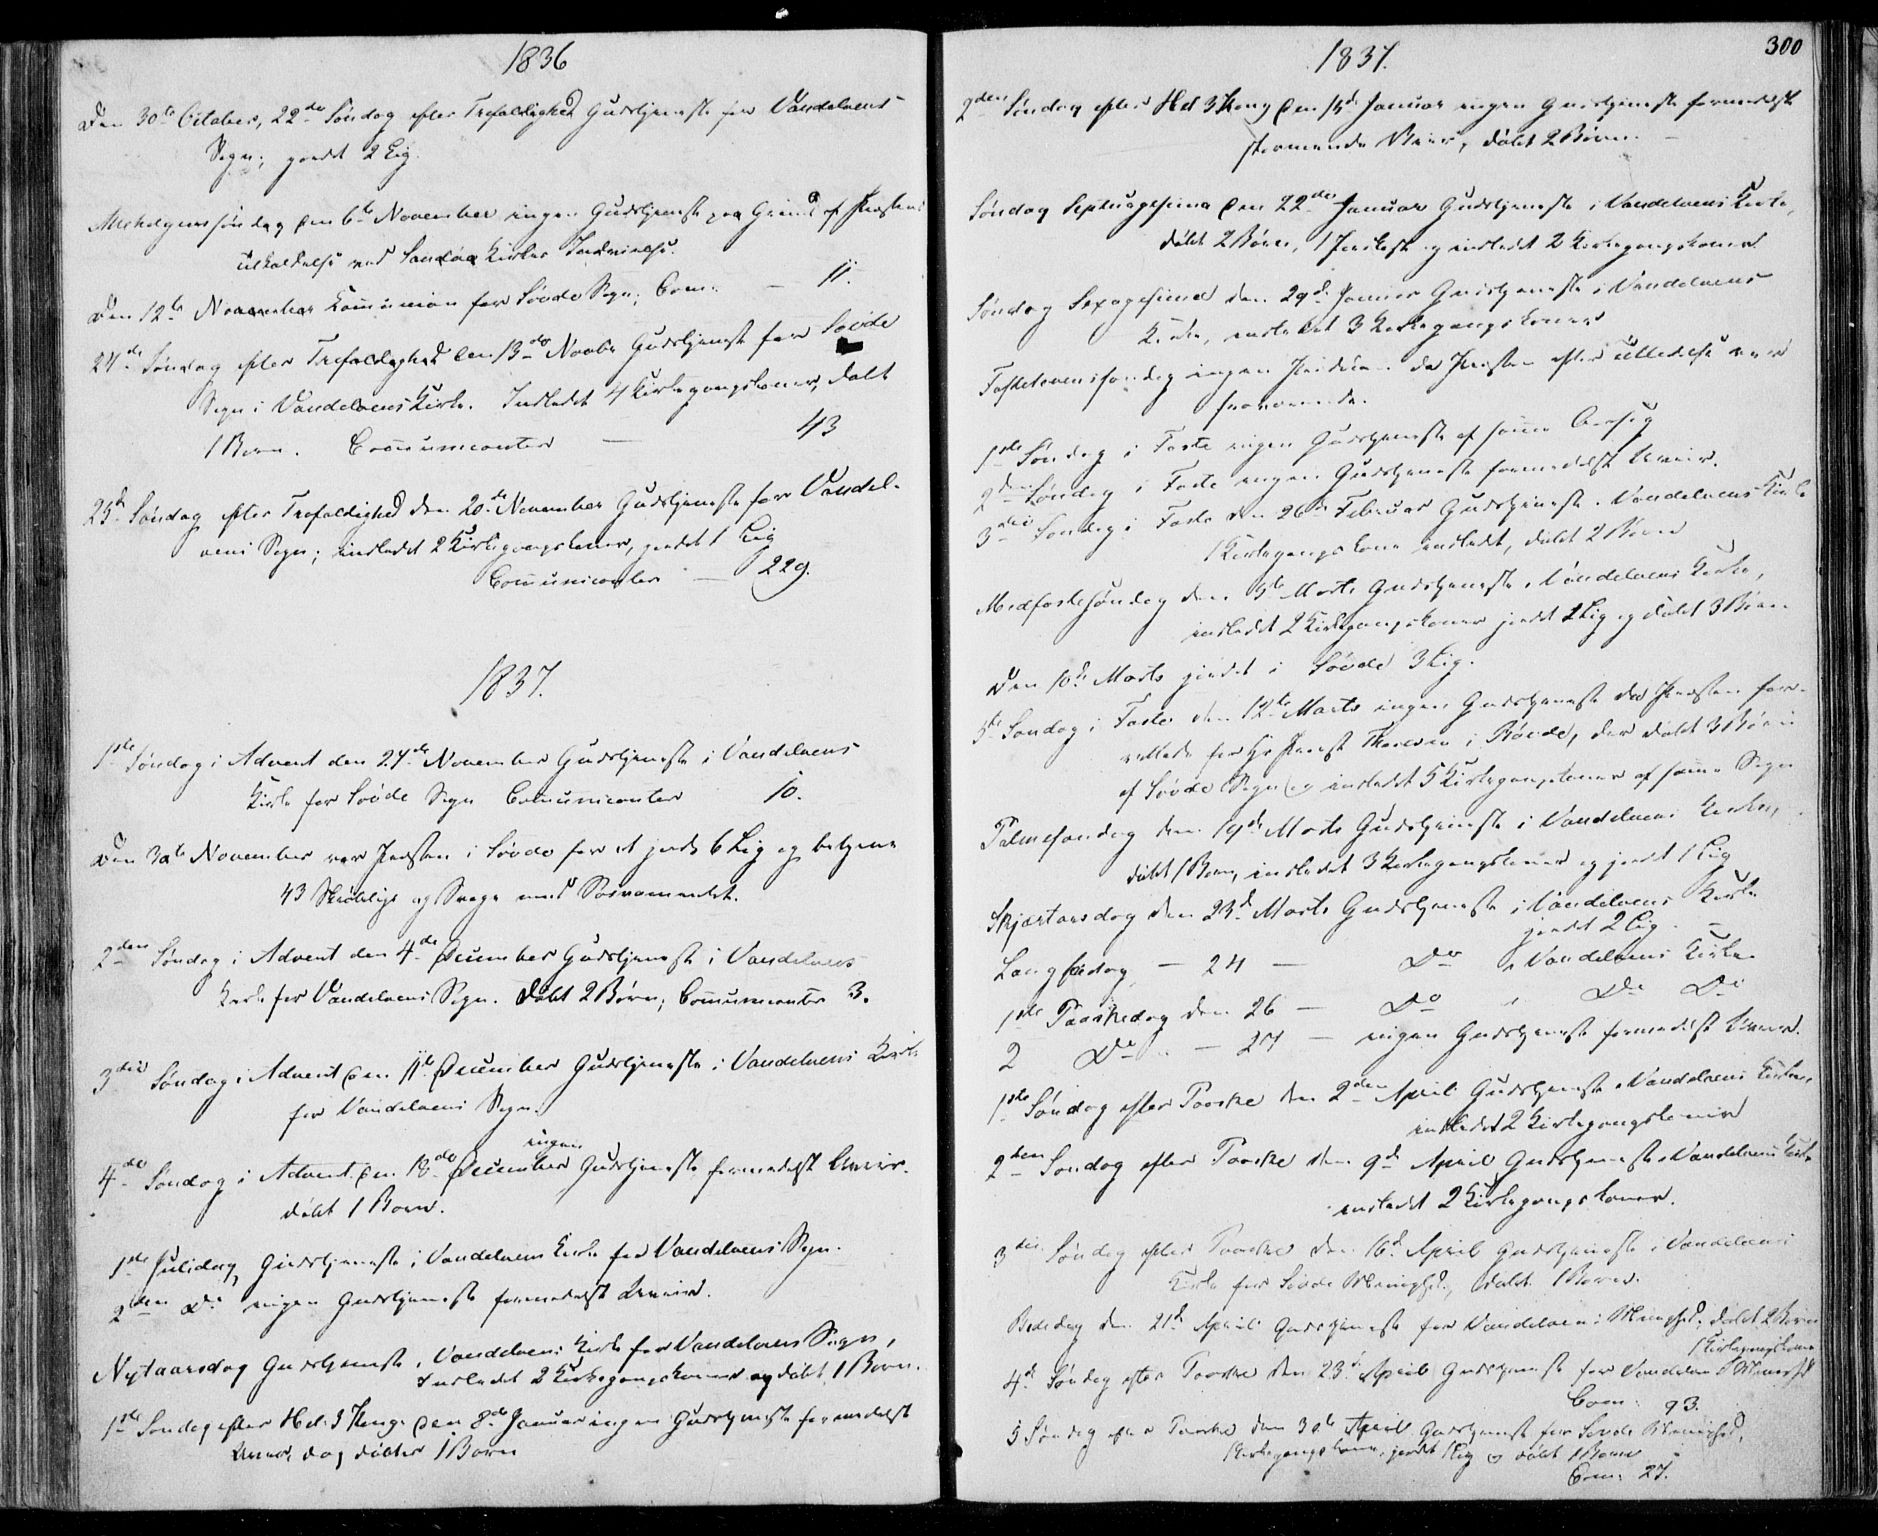 1836
Den 30te October, 22de Søndag efter Trefoldighed Gudstjeneste for Vandelvens
Sogn; jordet 2 Lig.
Allehelgenssøndag den 6te November ingen Gudstjeneste paa Grund af Præstens
ved Kirkes Indvielse.
Den 12te November Communion for Søvde Sogn; Com: — 11.
24de Søndag efter Trefoldighed den 13de Novbr Gudstjeneste for Søvde
Sogn i Vandelvens Kirke. Indledet 4 Kirkegangskoner, døbt
1 Barn. Communicanter — 43
25de Søndag efter Trefoldighed den 20de November Gudstjeneste for Vandel-
vens Sogn; indledet 2 Kirkegangskoner, jordet 1 Lig
Communicanter — 229.
1837.
1ste Søndag i Advent den 27de November Gudstjeneste i Vandelvens
Kirke for Søvde Sogn Communicanter 10.
Den 30te November var Præsten i Søvde for at jorde 6 Lig og betjene
43 Skrøbelige og Svage med Sacramentet.
2den Søndag i Advent den 4de December Gudstjeneste i Vandelvens
Kirke for Vandelvens Sogn. Døbt 2 Børn; Communicanter 3.
3die Søndag i Advent den 11te December Gudstjeneste i Vandelvens Kirke
for Vandelvens Sogn.
4de Søndag i Advent den 18de December ingen Gudstjeneste formedelst Uveir.
døbt 1 Barn.
1ste Juledag Gudstjeneste i Vandelvens Kirke for Vandelvens Sogn.
2den Do ingen Gudstjeneste formedelst Uveir.
Nytaarsdag Gudstjeneste i Vandelvens Kirke for Vandelvens Sogn,
Indledet 2 Kirkegangskoner og døbt 1 Barn.
1ste Søndag efter Hel: 3 Konge den 8de Januar ingen Gudstjeneste formedelst
Uveir, dog døbtes 1 Barn
1837.
300
2den Søndag efter Hel 3 Kong den 15de Januar ingen Gudstjeneste formedelst
stormende Veir, døbt 2 Børn. —
Søndag Septuagesima den 22de Januar Gudstjeneste i Vandelvens Kirke,
døbt 2 Børn, 1 og indledet 2 Kirkegangskoner
Søndag Sexagesima den 29de Januar Gudstjeneste i Vandelvens
Kirke, indledet 3 Kirkegangskoner
Fastelavenssøndag ingen Prædiken da Præsten efter var
fraværende.
1ste Søndag i Faste ingen Gudstjeneste af samme Aarsag
2den Søndag i Faste ingen Gudstjeneste formedelst Uveir.
3die Søndag i Faste den 26de Februar Gudstjeneste i Vandelvens Kirke
1 Kirkegangskone indledt, døbt 2 Børn
Midfastesøndag den 5te Marts Gudstjeneste i Vandelvens Kirke,
indledet 2 Kirkegangskoner jordet 1 Lig og døbt 3 Børn.
Den 10de Marts jordet i Søvde 3 Lig.
5te Søndag i Faste den 12te Marts ingen Gudstjeneste da Præsten for-
rettede for Hr Præst i Røvde, der døbt 3 Børn
af Søvde Sogn og indledet 5 Kirkegangskoner af samme Sogn
Palmesøndag den 19de Marts Gudstjeneste i Vandelvens Kirke,
døbt 1 Barn, indledet 3 Kirkegangskoner og jordet 1 Lig
Skjærtorsdag den 23de Marts Gudstjeneste i Vandelvens Kirke
jordet 2 Lig.
Langfredag — 24 — Do i Vandelvens Kirke
1ste Paaskedag den 26 — Do i Do Do
2 Do — 27 — ingen Gudstjeneste formedelst Uveir.
1ste Søndag efter Paaske den 2den April Gudstjeneste i Vandelvens Kirke,
indledet 2 Kirkegangskoner
2den Søndag efter Paaske den 9de April Gudstjeneste i Vandelvens Kirke
indledet 2 Kirkegangskoner.
3die Søndag efter Paaske den 16de April Gudstjeneste i Vandelvens
Kirke for Søvde Menighed, døbt 1 Barn.
Bededag den 21de April Gudstjeneste for Vandelvens Menighed, døbt 2 Børn
1 Kirkegangskone
4de Søndag efter Paaske den 23de April Gudstjeneste for Vandelvens Menighed
Com: 93.
5 Søndag efter Paaske den 30te April Gudstjeneste for Søvde Menighed,
1 Kirkegangskone, jordet 1 Lig og døbt 1 Barn
Com: 27.